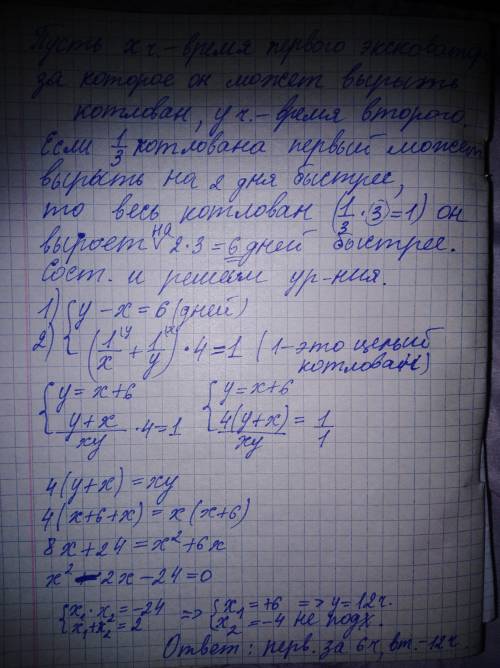 Пусть x ч. – время первого экскаватора
за которое он может вырыть
котлован, y ч. – время второго.
Если 1/3 котлована первый может
вырыть на 2 дня быстрее,
то весь котлован (1/3 · 3 = 1) он
выроет на 2·3=6 дней быстрее.
Сост. и решаем ур-ния.
1) { y – x = 6 (дней)
2) { (1/x + 1/y) · 4 = 1 (1-это целый
котлован)
{ y = x+6 { y = x+6
{ (y+x)/xy · 4 = 1 { 4(y+x)/xy = 1/1
4(y+x) = xy
4(x+6+x) = x(x+6)
8x+24 = x²+6x
x² – 2x – 24 = 0
{ x₁ · x₂ = –24 => { x₁ = +6 => y = 12ч.
{ x₁+x₂ = 2 { x₂ = –4 не подх.
Ответ: перв. за 6ч, вт. – 12ч.